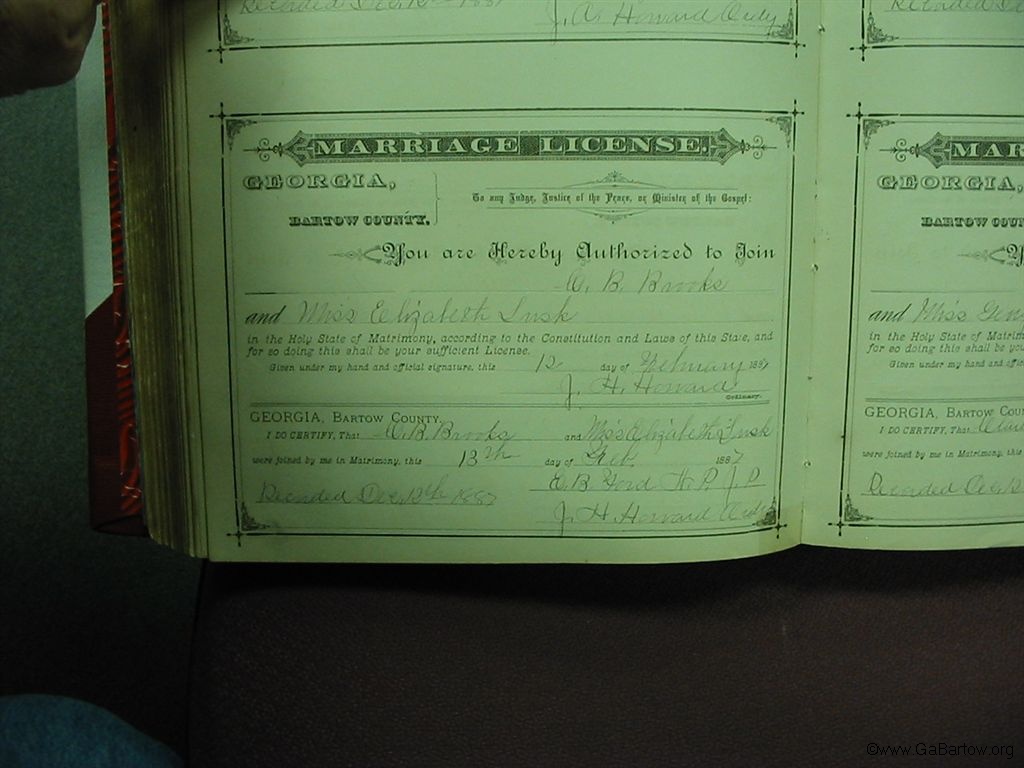 Recorded Dec. 12th 1887
J. H. Howard Ordy
Recorded De
MARRIAGE LICENSE.
GEORGIA,
BARTOW COUNTY.
To any Judge, Justice of the Peace, or Minister of the Gospel:
You are Hereby Authorized to Join
O. B. Brooks
and Miss Elizabeth Lusk
in the Holy State of Matrimony, according to the Constitution and Laws of this State, and
for so doing this shall be your sufficient License.
Given under my hand and official signature, this 12 day of February 1887
J. H. Howard
Ordinary.
GEORGIA, BARTOW COUNTY.
I DO CERTIFY, That O. B. Brooks and Miss Elizabeth Lusk
were joined by me in Matrimony, this 13th day of Feb. 1887
E. B. Ford N. P. J. P
Recorded Dec. 12th 1887
J. H. Howard Ordy
MAR
GEORGIA,
BARTOW COUN
and Miss
in the Holy State of Matrim
for so doing this shall be you
Given under my hand and offic
GEORGIA, BARTOW COU
I DO CERTIFY, That
were joined by me in Matrimony, this
Recorded Dec. 12
©www.GaBartow.org